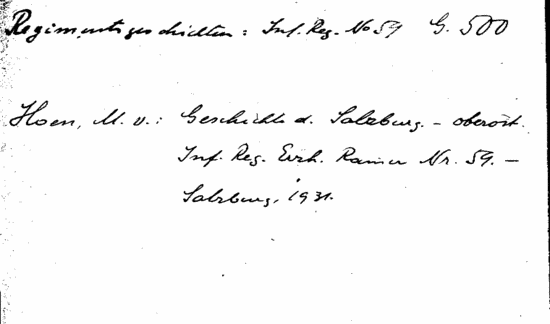 Regimentsgeschichten: Inf. Reg. No 59 G. 500
Hoen, M. v.: Geschichte d. Salzburg. - oberöst.
Inf. Reg. Erzh. Rainer Nr. 59. -
Salzburg, 1931.